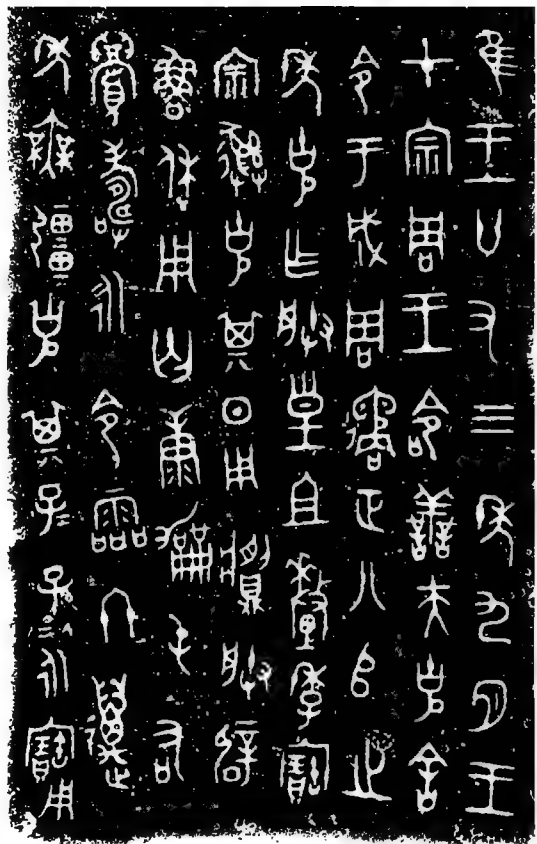 隹王廿又三年九月王
才宗周王命善夫克舍
令于成周遹正八𠂤之
年克乍朕皇且釐季寶
宗彝克其日用䵼朕辟
魯休用匄康𠭯屯右
眉壽永令霝冬邁
年無疆克其子子孫孫永寶用